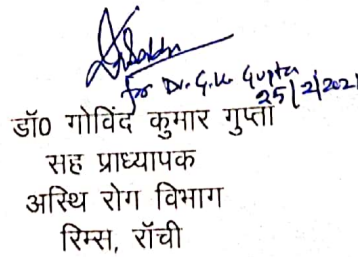 for Dr. G.K. Gupta
25/2/202
डॉ0 गोविंद कुमार गुप्ता
सह प्राध्यापक
अस्थि रोग विभाग
रिम्स, राँची